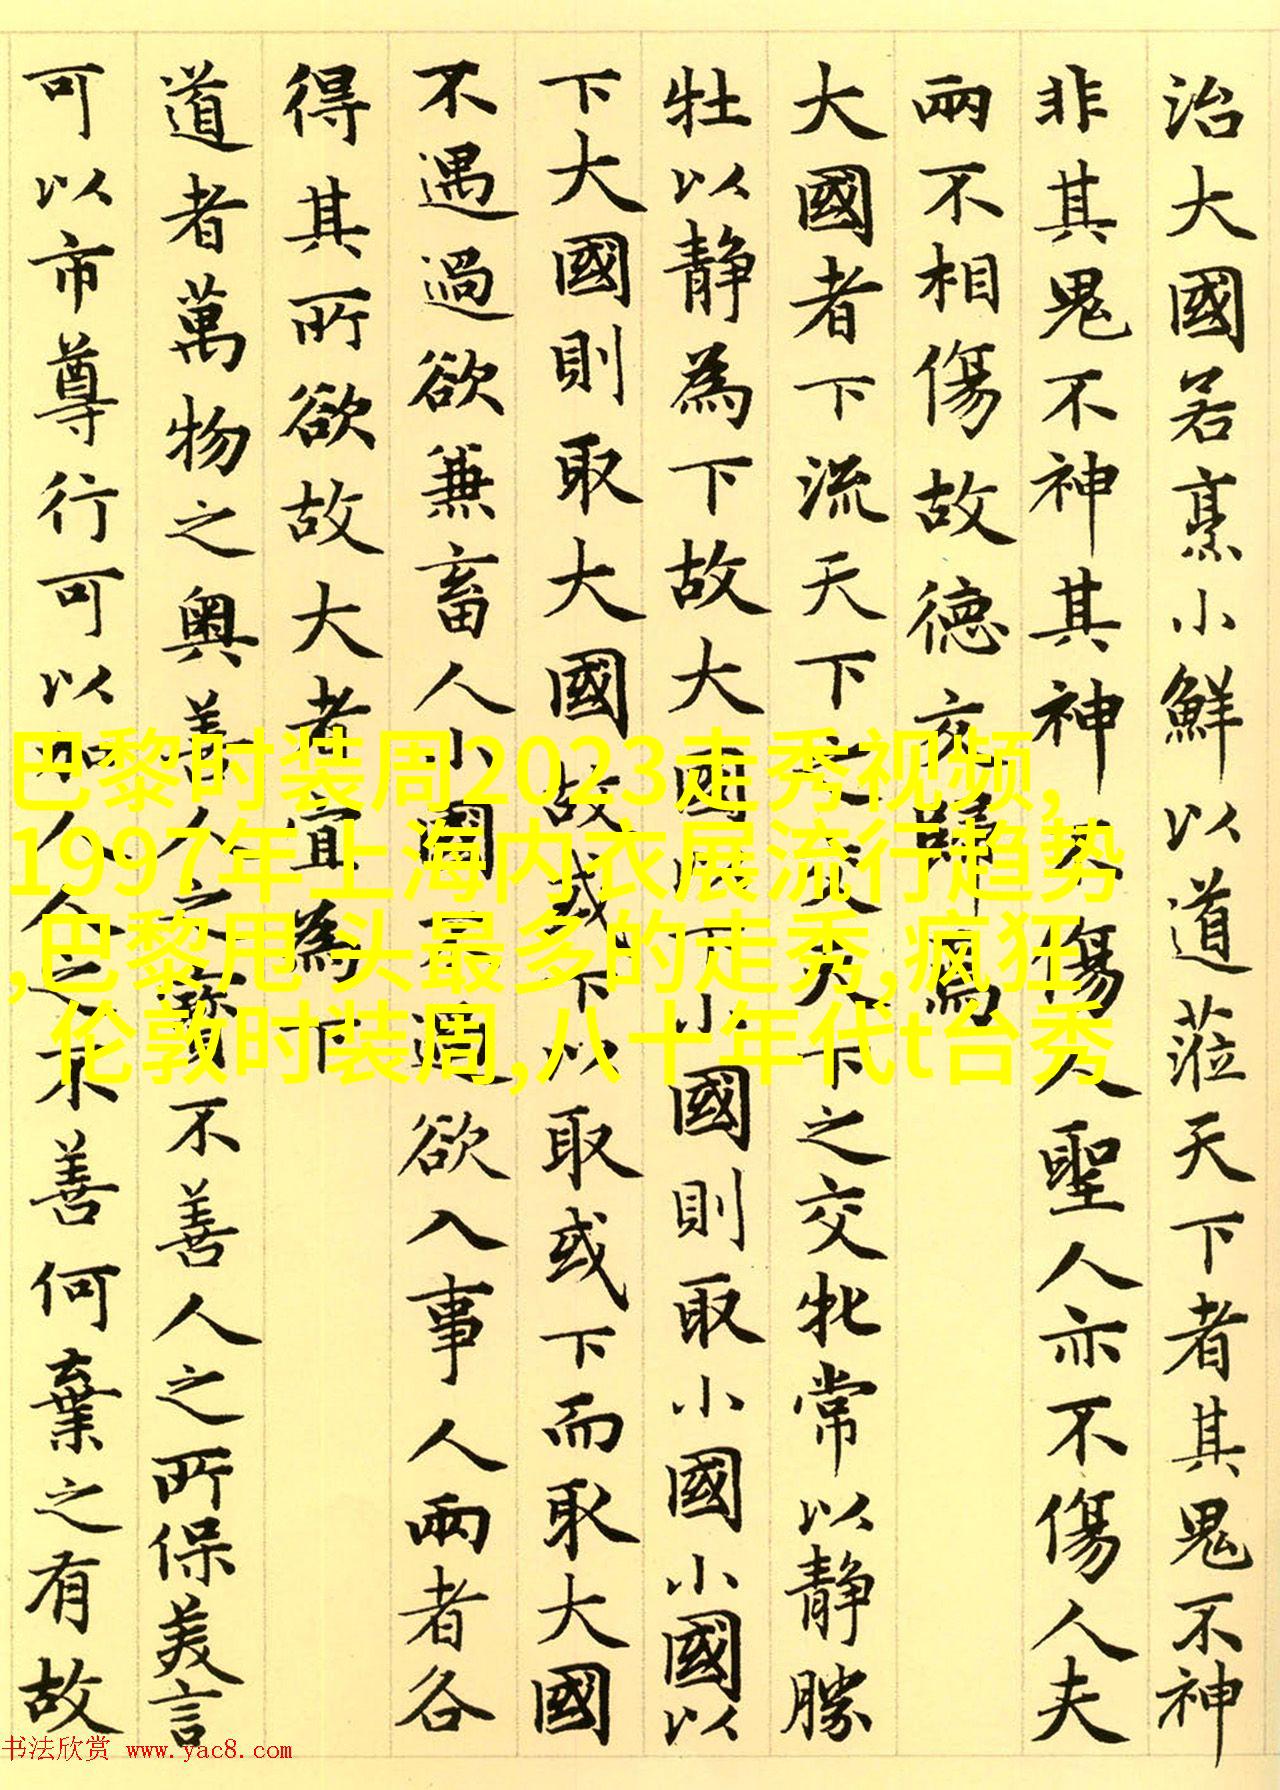 治大國若烹小鮮以道蒞天下者其鬼不神
非其鬼不神其神不傷人聖人亦不傷人夫
兩不相傷故德交歸焉
大國者下流天下之交天下之交牝常以靜勝
牡以靜為下故大國以下小國則取小國小國以
下大國則取大國故或下以取或下而取大國
不遇過欲兼畜人小國不過欲入事人兩者各
得其所欲故大者宜為下
道者萬物之奧善人之寶不善人之所保美言
可以市尊行可以加人人之不善何棄之有故
巴黎时装周2023走秀视频,
1997年上海内衣展流行趋势
,巴黎甩头最多的走秀,疯狂
伦敦时装周,八十年代t台秀
书法欣赏 www.yac8.com